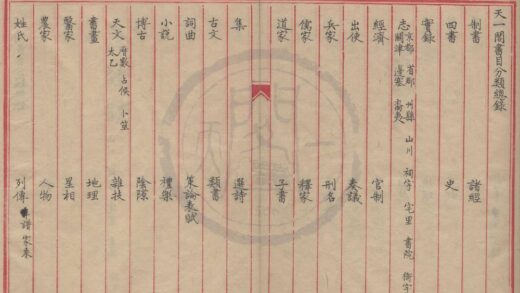 天一閣書目分類總錄
制書 諸經
四書 史
實錄
志 京都 首郡 州縣 山川 祠宇 宅里 書院 衙宇 關津 邊塞 裔夷
經濟 官制
出使 奏議
兵家 刑名
儒家 釋家
道家 子書
集 選詩
古文 類書
詞曲 策論表賦
小說 禮樂
博古 陰隲
天文 曆數 占候 卜筮 太乙 雜技
書畫 地理
醫家 星相
農家 人物
姓氏 列傳 年譜 家乘